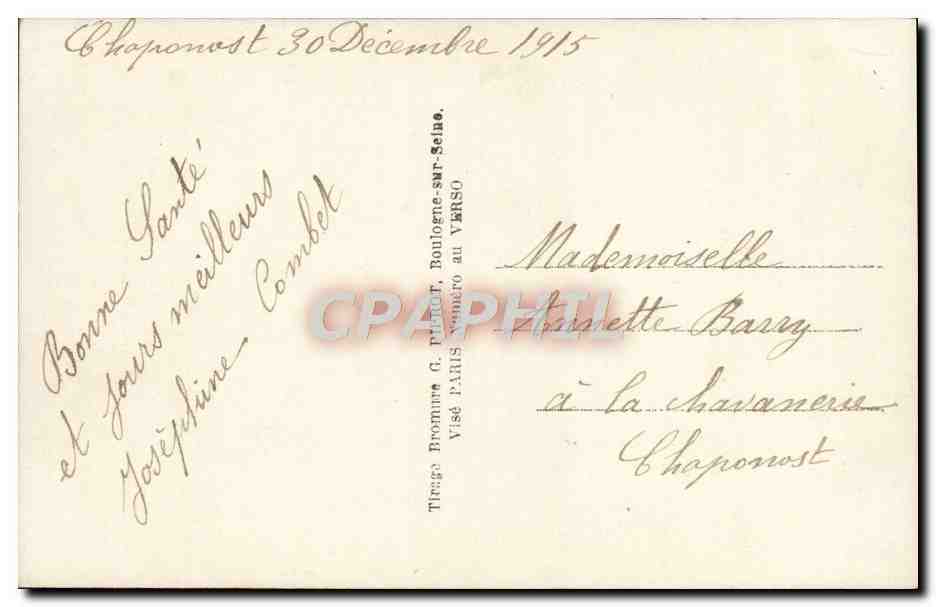 Chaponost 30 Décembre 1915
Bonne Santé
et jours meilleurs
Joséphine Combet
Tirage Bromure G. PIPROT, Boulogne-sur-Seine.
Visé PARIS Numéro au VERSO
CPAPHIL
Mademoiselle
Annette Barry
à la chavanerie
Chaponost